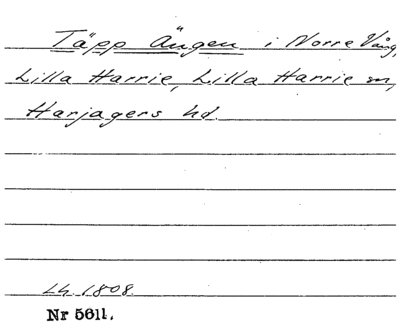 Täpp Ängen i Norre Vång,
Lilla Harrie, Lilla Harrie sn,
Harjagers hd.
Lh. 1808.
Nr 5611.